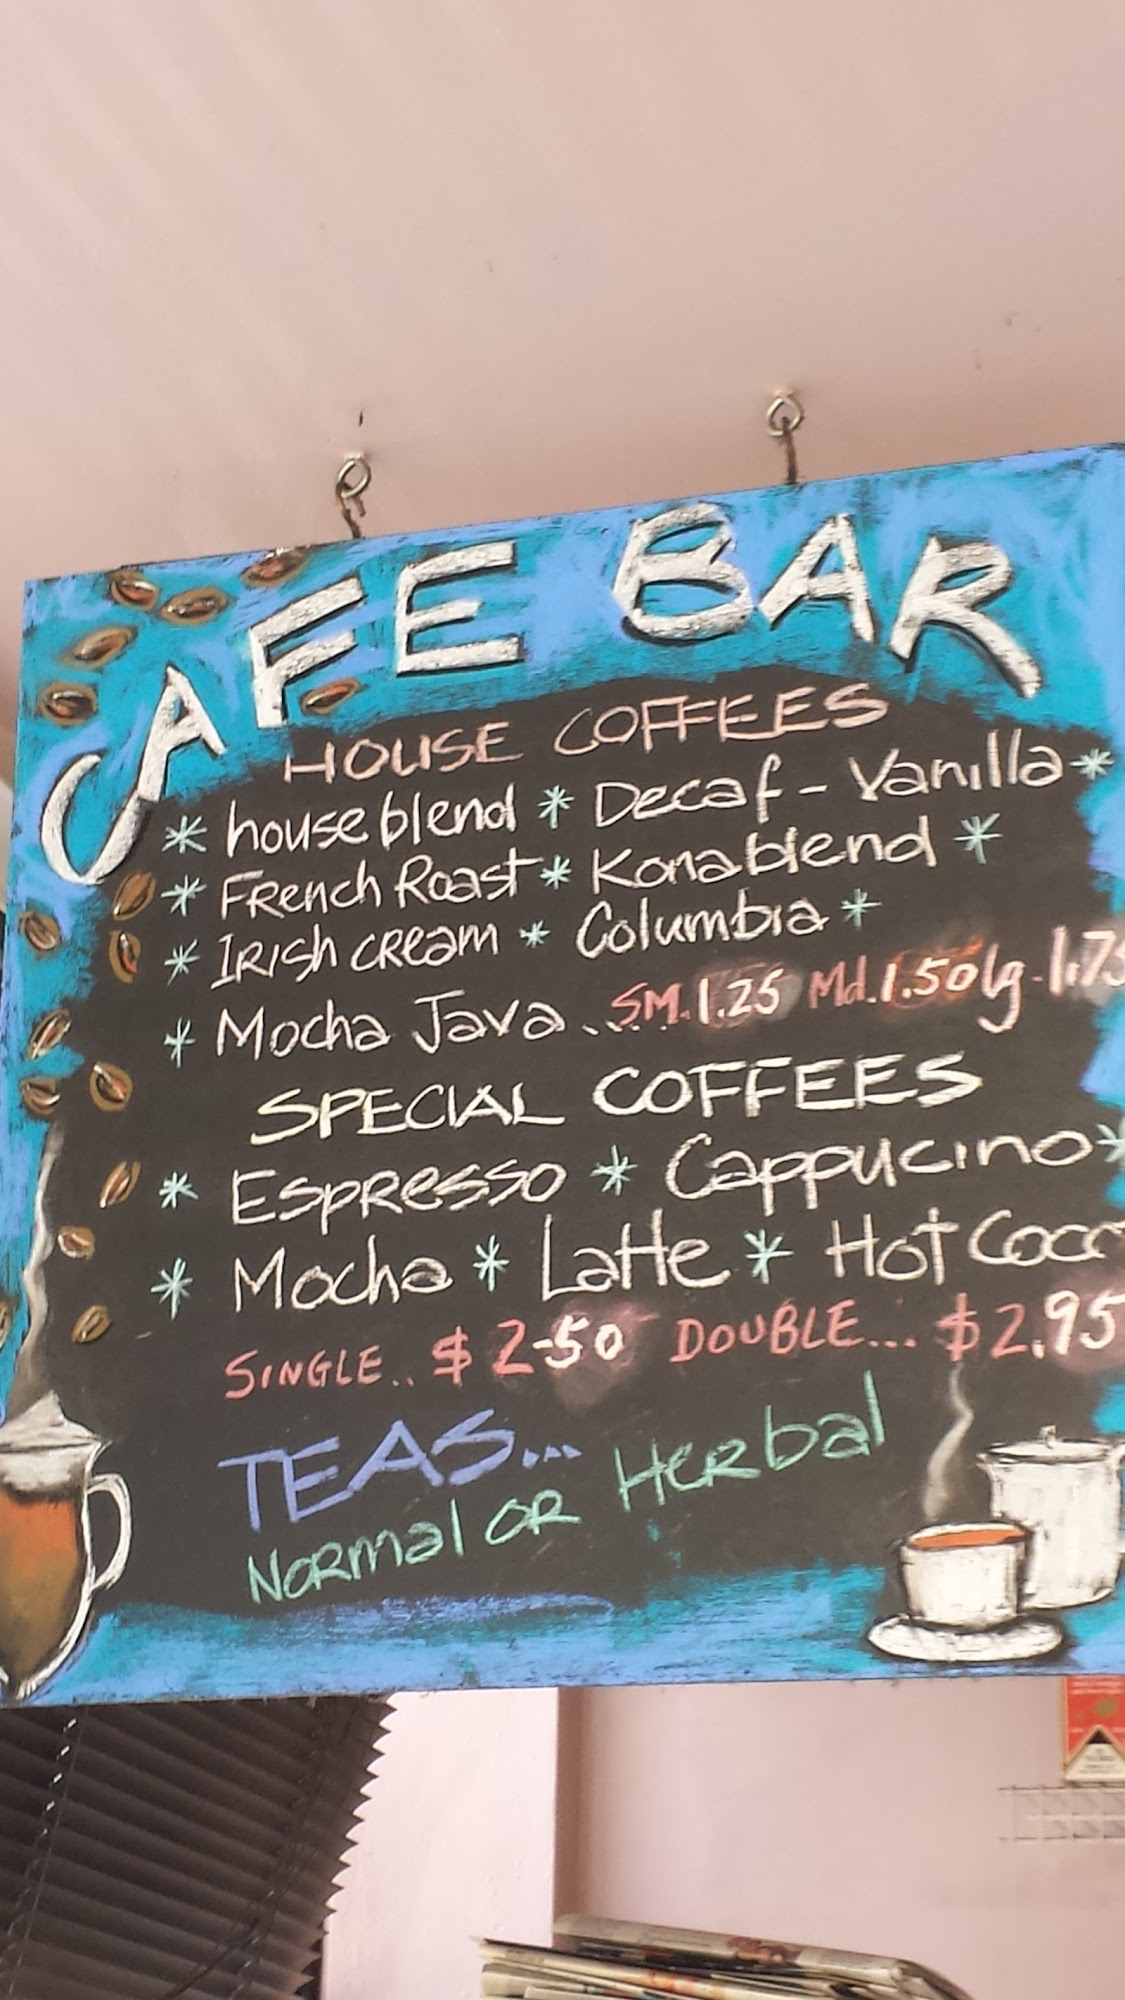 CAFE BAR
HOUSE COFFEES
* house blend * Decaf - Vanilla *
* French Roast * Kona blend *
* Irish cream * Columbia *
* Mocha Java ...... SM. 1.25 Md. 1.50 lg. 1.75
SPECIAL COFFEES
* Espresso * Cappucino *
* Mocha * Latte * Hot Coco
SINGLE.. $ 2-50 DOUBLE... $ 2.95
TEAS...
Normal or Herbal